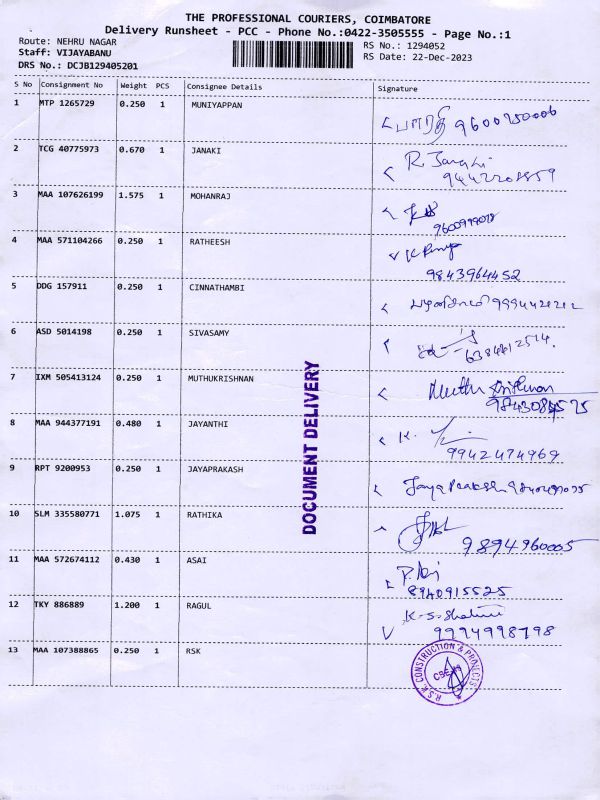 THE PROFESSIONAL COURIERS, COIMBATORE
Delivery Runsheet - PCC - Phone No.:0422-3505555 - Page No.:1
Route: NEHRU NAGAR RS No.: 1294052
Staff: VIJAYABANU RS Date: 22-Dec-2023
DRS No.: DCJB129405201
S No Consignment No Weight PCS Consignee Details Signature
1 MTP 1265729 0.250 1 MUNIYAPPAN
பாரதி 9600250006
2 TCG 40775973 0.670 1 JANAKI
R Janaki
9442208859
3 MAA 107626199 1.575 1 MOHANRAJ
4 MAA 571104266 0.250 1 RATHEESH
9843964452
5 DDG 157911 0.250 1 CINNATHAMBI
6 ASD 5014198 0.250 1 SIVASAMY
7 IXM 505413124 0.250 1 MUTHUKRISHNAN
Muthu Krishnan
8 MAA 944377191 0.480 1 JAYANTHI
K.
9942474969
9 RPT 9200953 0.250 1 JAYAPRAKASH
Jaya Prakash
10 SLM 335580771 1.075 1 RATHIKA
9894960005
11 MAA 572674112 0.430 1 ASAI
P. Asi
8940915525
12 TKY 886889 1.200 1 RAGUL
K.S. Shalini
9994998798
13 MAA 107388865 0.250 1 RSK
R.S.K CONSTRUCTION & PROJECTS
DOCUMENT DELIVERY